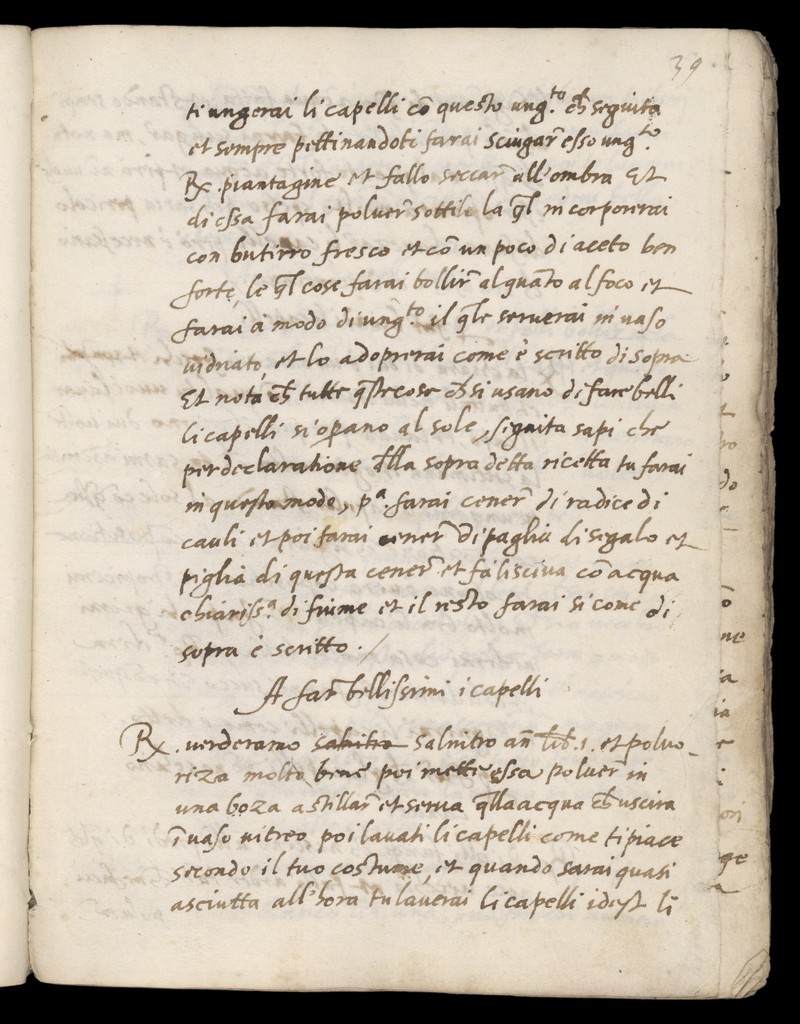 39
ti ungerai li capelli cõ questo ung.to ch̃ seguita
et sempre pettinandoti farai sciugar̃ esso ung.to
℞. piantagine et fallo seccar̃ all'ombra Et
di essa farai poluer̃ sottile la ql̃ incorporerai
con butirro fresco et cõ un poco di aceto ben
forte, le ql̃ cose farai bollir̃ alquãto al foco et
farai à modo di ung.to il qle seruerai in uaso
uidriato, et lo adoprerai come è scritto di sopra
Et nota ch̃ tutte qste cose ch̃ si usano di fare belli
li capelli si opano al sole, seguita sapi che
per declaratione dlla sopra detta ricetta tu farai
in questo modo, p.a farai cener̃ di radice di
cauli et poi farai cener̃ di paglia di segalo et
piglia di questa cener̃ et fa lisciua cõ acqua
chiariss.a di fiume et il resto farai si come di
sopra è scritto. /
A far̃ bellissimi i capelli
℞. uerderamo salnitro salnitro añ lib. 1. et poluo-
riza molto bene poi mette essa poluer̃ in
una boza a stillar̃ et serua qlla acqua ch̃ uscira
ĩ uaso uitreo, poi lauati li capelli come ti piace
secondo il tuo costume, et quando sarai quasi
asciutta all'hora tu lauerai li capelli idest li